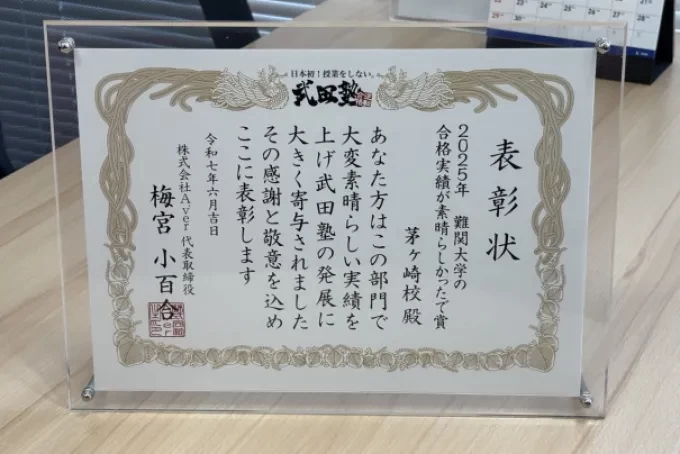 日本初！授業をしない。
武田塾
表彰状
2025年 難関大学の
合格実績が素晴らしかったで賞
茅ヶ崎校 殿
あなた方はこの部門で
大変素晴らしい実績を
上げ武田塾の発展に
大きく寄与されました
その感謝と敬意を込め
ここに表彰します
令和七年六月吉日
株式会社A.ver 代表取締役
梅宮 小百合